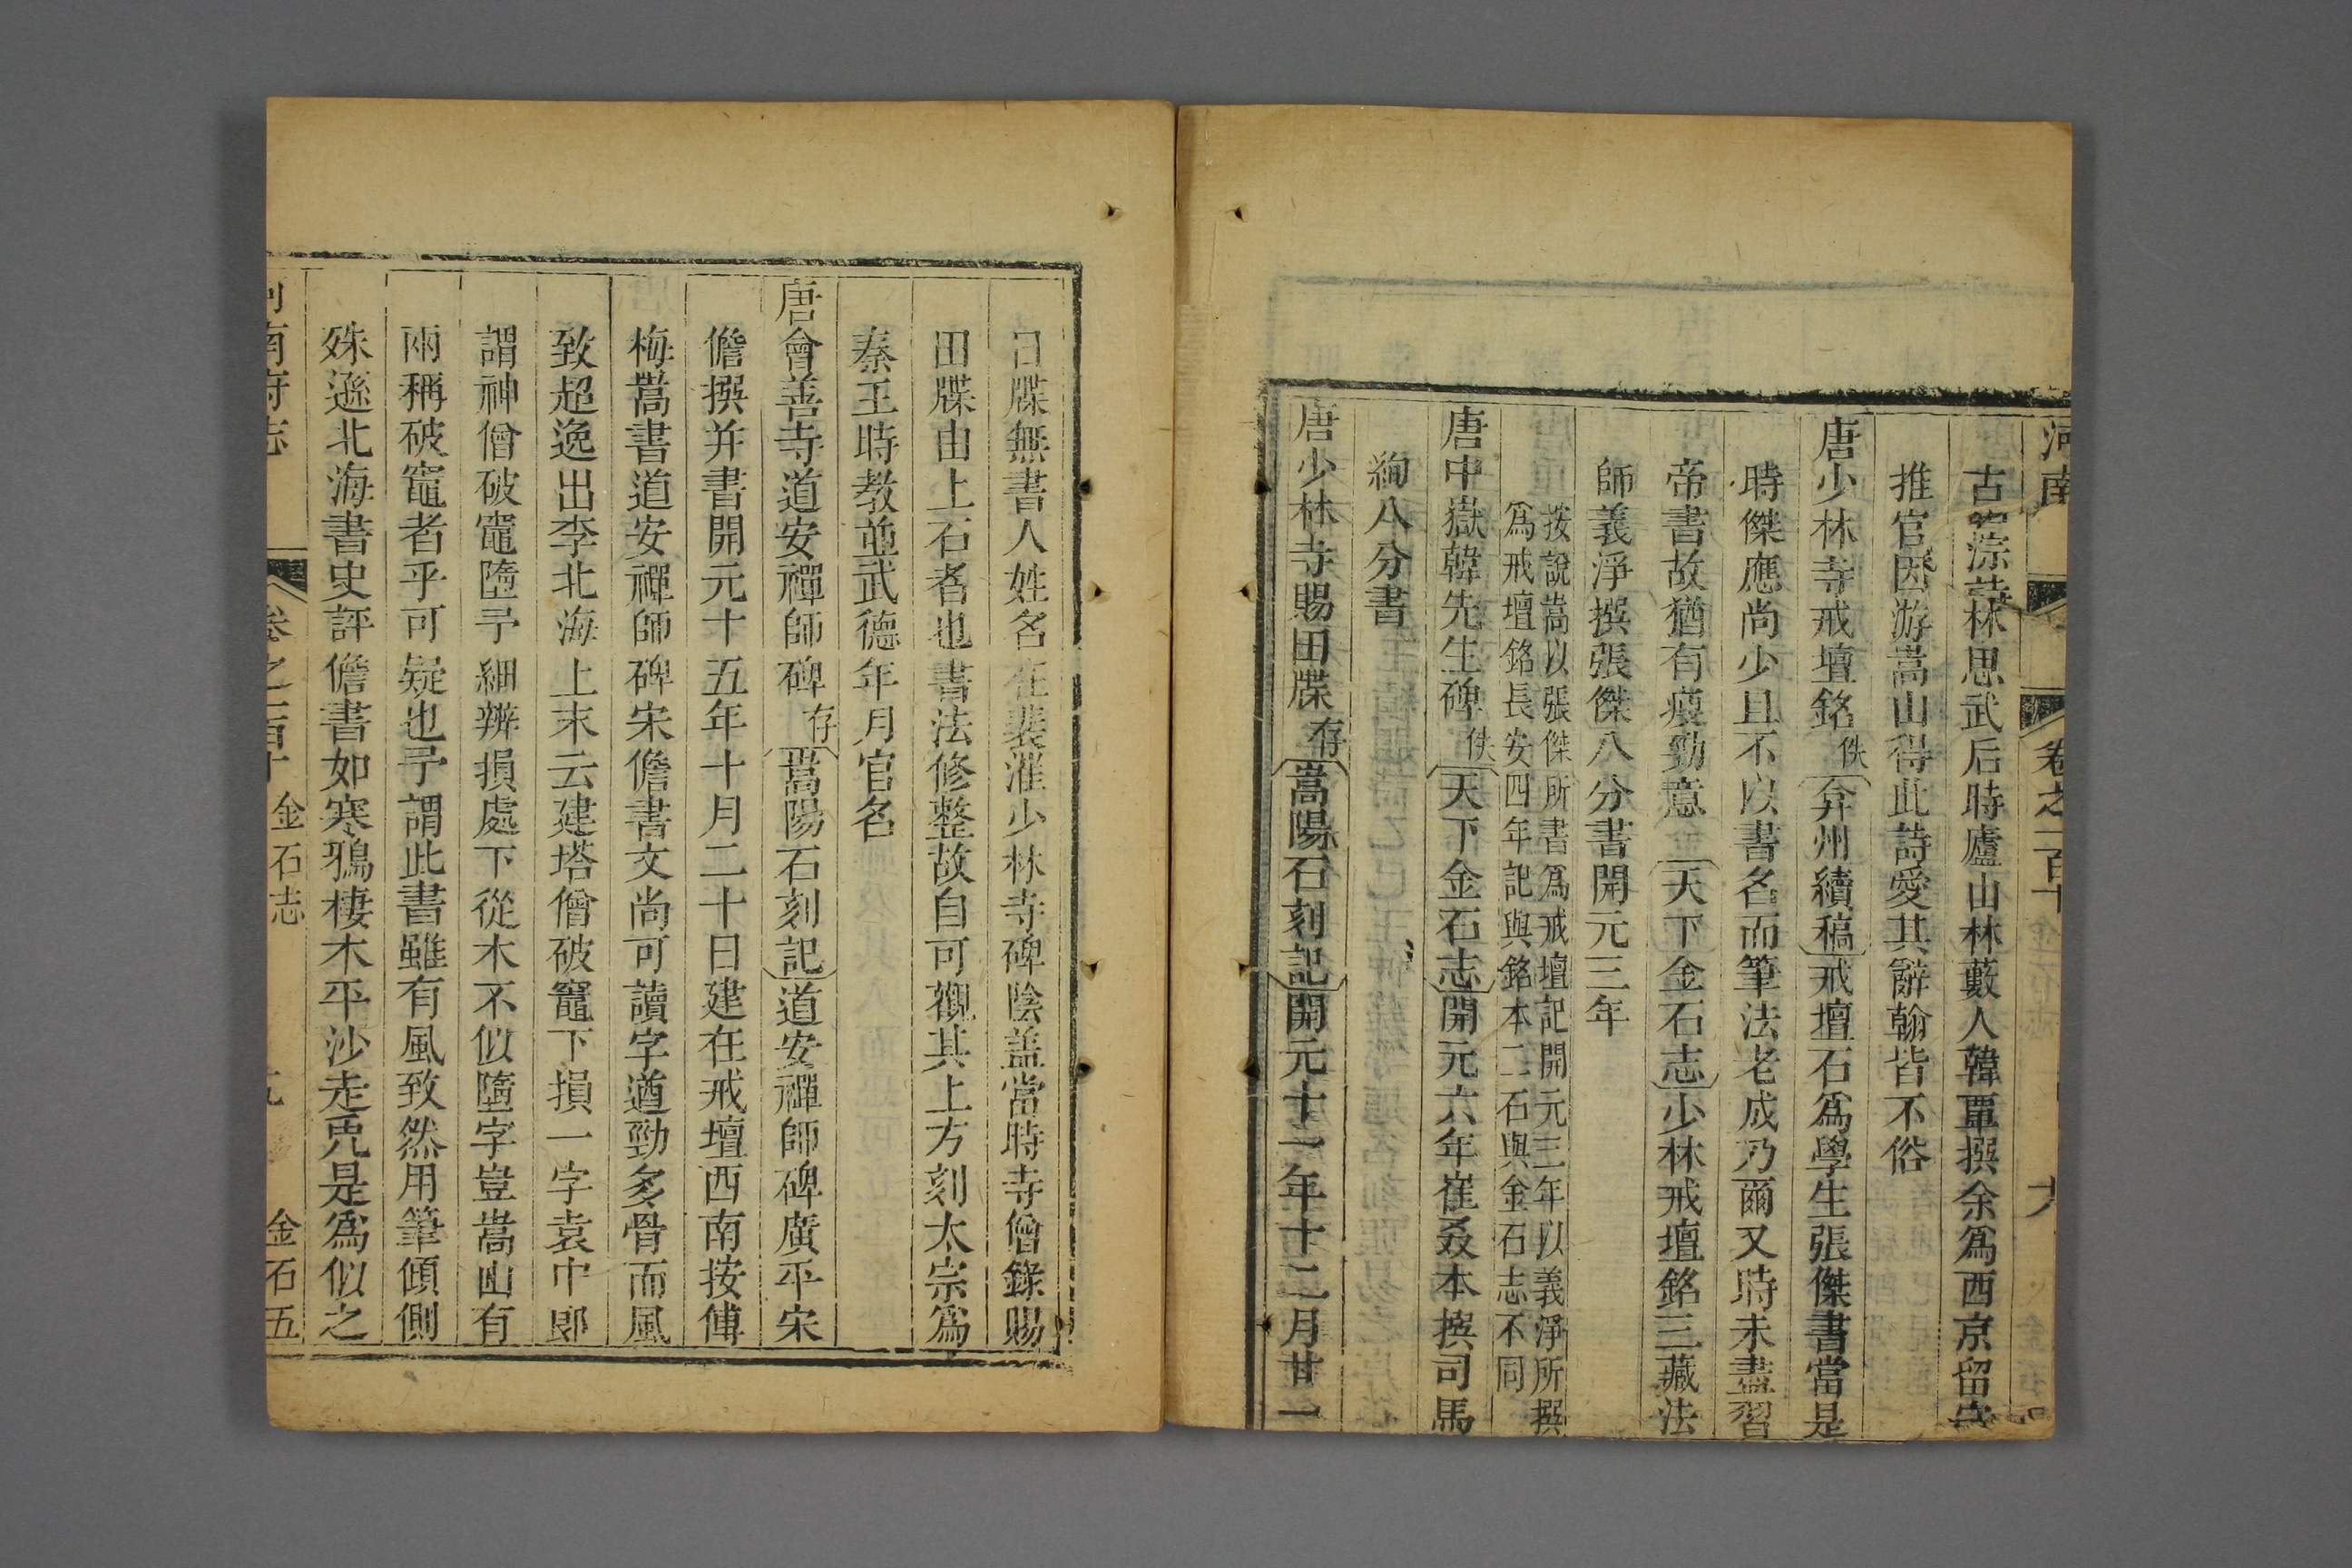 河南
卷之一百十
古淙詩林思武后時廬山林藪人韓覃撰余爲西京留守
推官因游嵩山得此詩愛其辭翰皆不俗
唐少林寺戒壇銘佚弇州續稿戒壇石爲學生張傑書當是
時傑應尚少且不以書名而筆法老成乃爾又時未盡習
帝書故猶有瘦勁意天下金石志少林戒壇銘三藏法
師義淨撰張傑八分書開元三年
按說嵩以張傑所書爲戒壇記開元三年以義淨所撰
爲戒壇銘長安四年記與銘本二石與金石志不同
唐中嶽韓先生碑佚天下金石志開元六年崔叕本撰司馬
絢八分書
唐少林寺賜田牒存嵩陽石刻記開元十一年十二月廿一
日牒無書人姓名在裴漼少林寺碑陰盖當時寺僧錄賜
田牒由上石者也書法修整故自可觀其上方刻太宗爲
秦王時教並武德年月官名
唐會善寺道安禪師碑存嵩陽石刻記道安禪師碑廣平宋
儋撰并書開元十五年十月二十日建在戒壇西南按傅
梅嵩書道安禪師碑宋儋書文尚可讀字遒勁多骨而風
致超逸出李北海上末云建塔僧破竈下損一字袁中郎
謂神僧破竈墮予細辨損處下從木不似墮字豈嵩山有
兩稱破竈者乎可疑也予謂此書雖有風致然用筆傾側
殊遜北海書史評儋書如寒鴉棲木平沙走兎是爲似之
南府志
卷之一百十
金石志
金石五